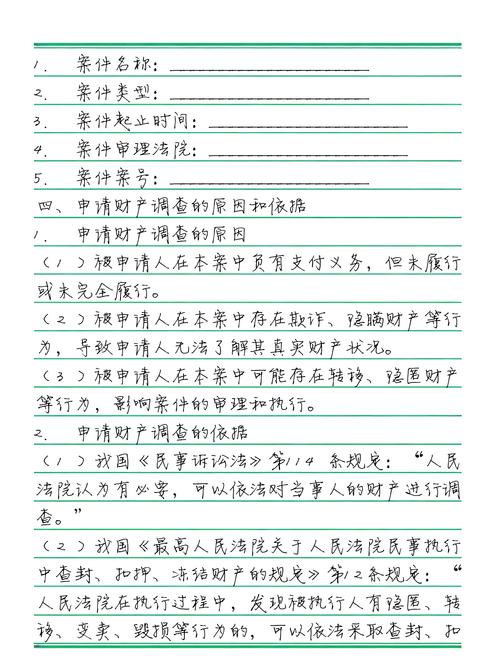 1. 案件名称：____________________
2. 案件类型：____________________
3. 案件起止时间：____________________
4. 案件审理法院：____________________
5. 案件案号：____________________
四、申请财产调查的原因和依据
1. 申请财产调查的原因
（1）被申请人在本案中负有支付义务，但未履行
或未完全履行。
（2）被申请人在本案中存在欺诈、隐瞒财产等行
为，导致申请人无法了解其真实财产状况。
（3）被申请人在本案中可能存在转移、隐匿财产
等行为，影响案件的审理和执行。
2. 申请财产调查的依据
（1）我国《民事诉讼法》第114条规定：“人民
法院认为有必要，可以依法对当事人的财产进行调
查。”
（2）我国《最高人民法院关于人民法院民事执行
中查封、扣押、冻结财产的规定》第12条规定：“
人民法院在执行过程中，发现被执行人有隐匿、转
移、变卖、毁损等行为的，可以依法采取查封、扣